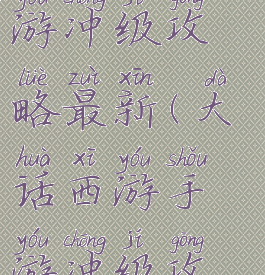 yóu chōng jí gōng
游冲级攻
lüè zuì xīn dà
略最新(大
huà xī yóu shǒu
话西游手
yóu chōng jí gōng
游冲级攻